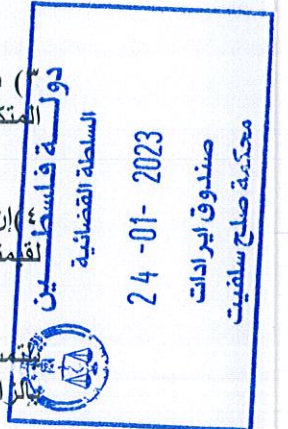 دولة فلسطين
السلطة القضائية
24 -01- 2023
صندوق ايرادات
محكمة صلح سلفيت
٣)
٤)إن